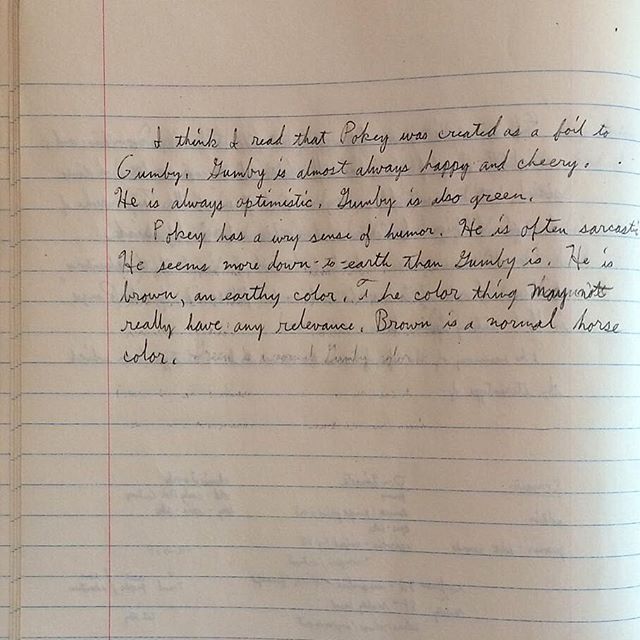 I think I read that Pokey was created as a foil to
Gumby. Gumby is almost always happy and cheery.
He is always optimistic. Gumby is also green.
Pokey has a wry sense of humor. He is often sarcasti
He seems more down-to-earth than Gumby is. He is
brown, an earthy color. The color thing may not
really have any relevance. Brown is a normal horse
color.